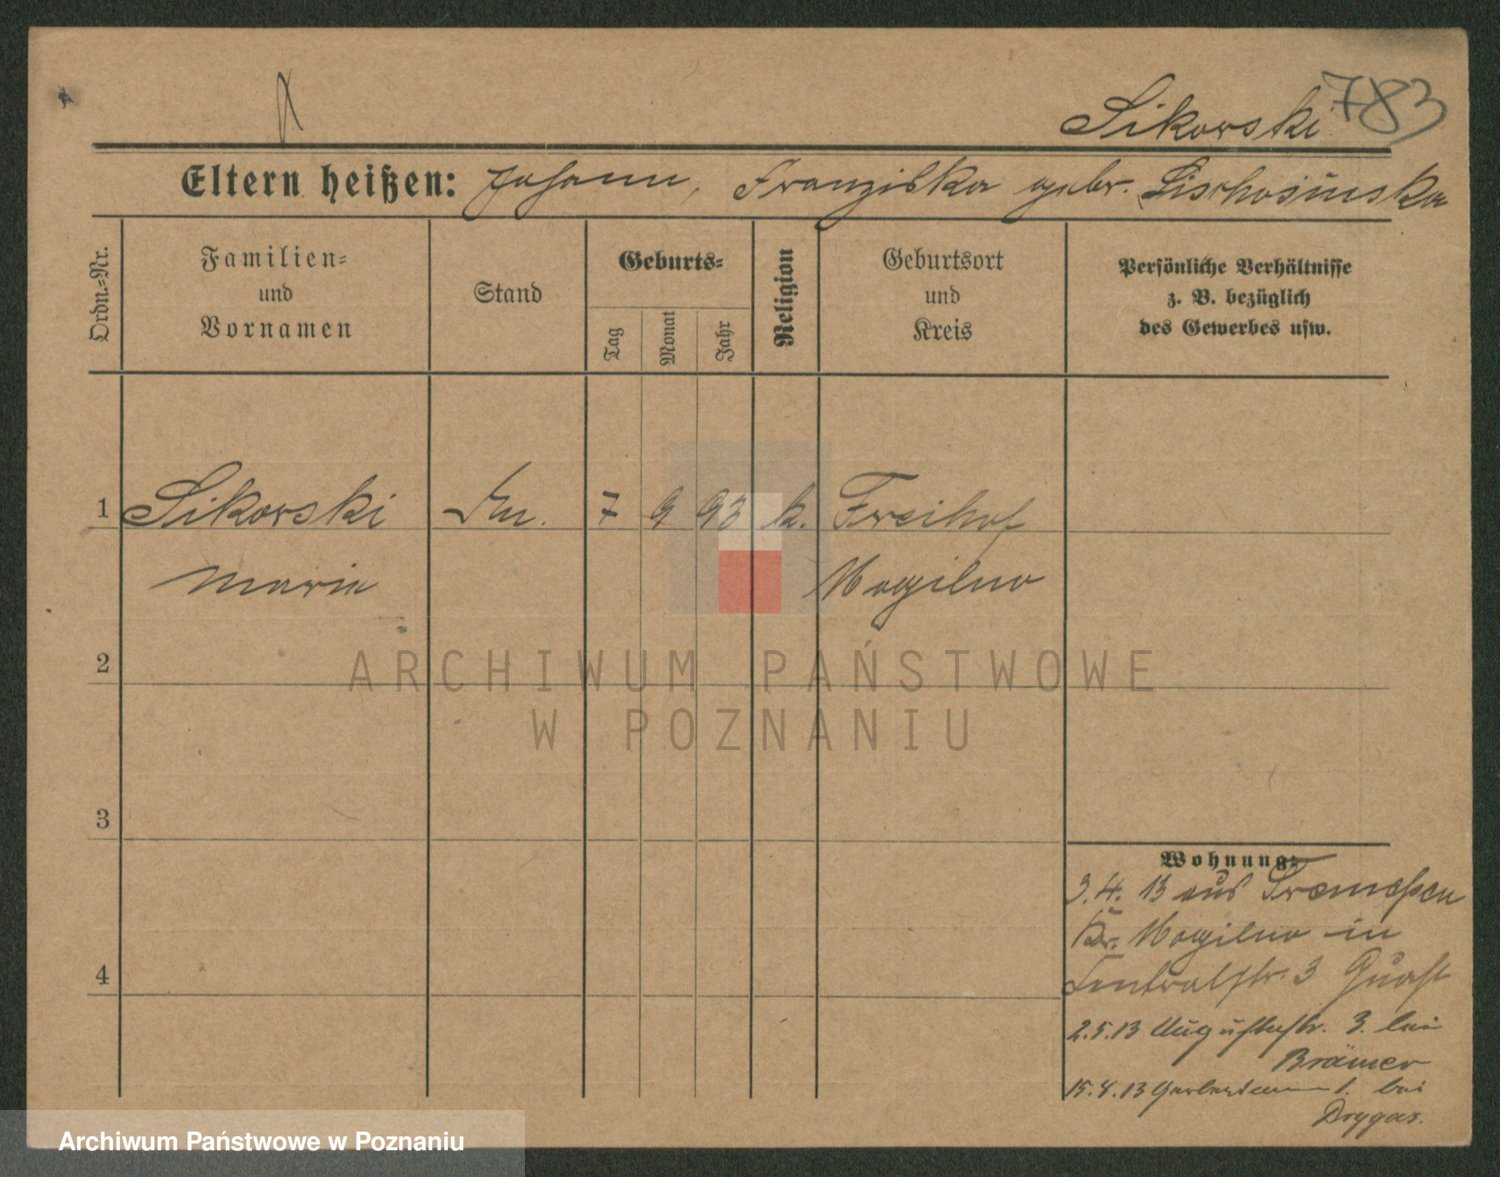 Sikorski 783
Eltern heißen: Johann, Franziska gebr.
Ordn.-Nr.
Familien-
und
Vornamen
Stand
Geburts-
Tag
Monat
Jahr
Religion
Geburtsort
und
Kreis
Persönliche Verhältnisse
z. B. bezüglich
des Gewerbes usw.
1 Sikorski 7 9 93 k. Freihof
Maria Mogilno
2
3
4
Wohnung:
3.4.13 aus Tremessen
Kr. Mogilno in
Centralstr. 3 Quast
2.5.13 Augustastr. 3. bei
Brämer
15.8.13 1. bei
Drygas.
ARCHIWUM PAŃSTWOWE
W POZNANIU
Archiwum Państwowe w Poznaniu